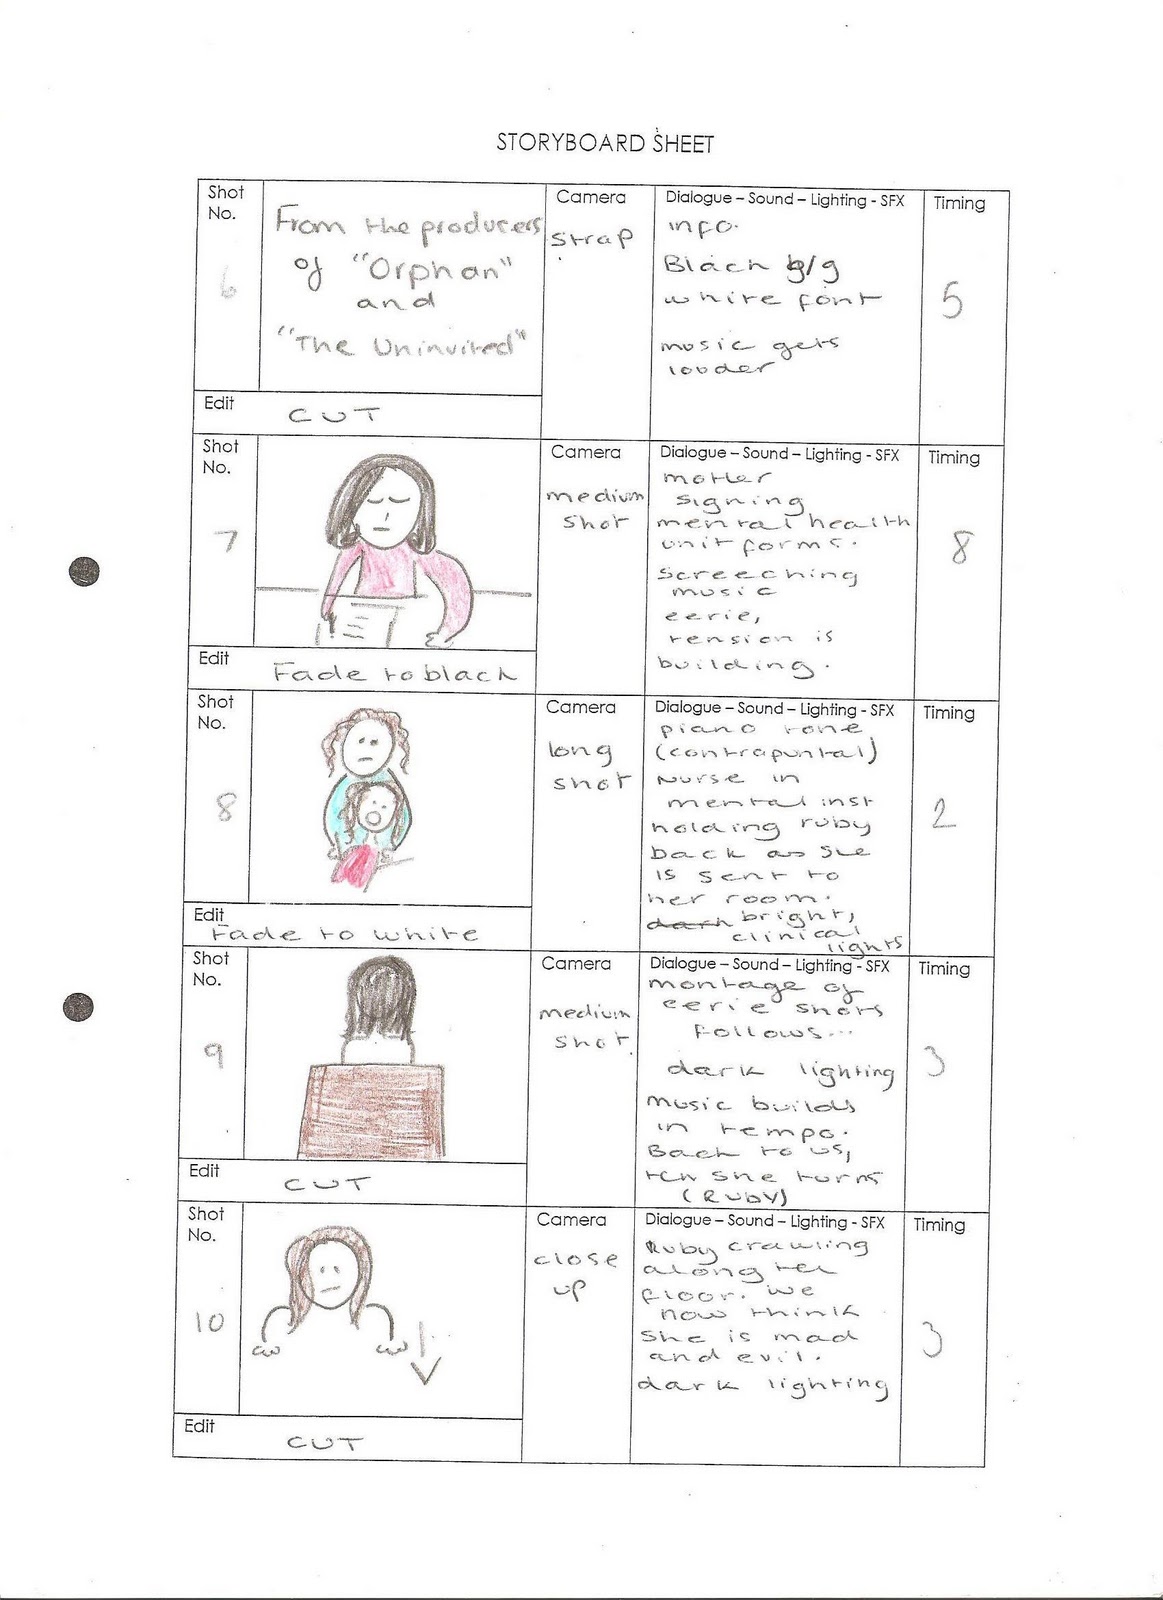 STORYBOARD SHEET
Shot
No.
6
From the producers
of "Orphan"
and
"The Uninvited"
Edit
CUT
Camera
strap
Dialogue – Sound – Lighting - SFX
info.
Black b/g
white font
music gets
louder
Timing
5
Shot
No.
7
Edit
Fade to black
Camera
medium
shot
Dialogue – Sound – Lighting - SFX
mother
signing
mental health
unit forms.
screeching
music
eerie,
tension is
building.
Timing
8
Shot
No.
8
Edit
Fade to white
Camera
long
shot
Dialogue – Sound – Lighting - SFX
piano tone
(contrapuntal)
Nurse in
mental inst
holding ruby
back as she
is sent to
her room.
dark bright,
clinical
lights
Timing
2
Shot
No.
9
Edit
CUT
Camera
medium
shot.
Dialogue – Sound – Lighting - SFX
montage of
eerie shots
follows...
dark lighting
music builds
in tempo.
Back to us,
she turns
(RUBY)
Timing
3
Shot
No.
10
Edit
CUT
Camera
close
up
Dialogue – Sound – Lighting - SFX
Ruby crawling
along the
floor. we
now think
she is mad
and evil.
dark lighting
Timing
3